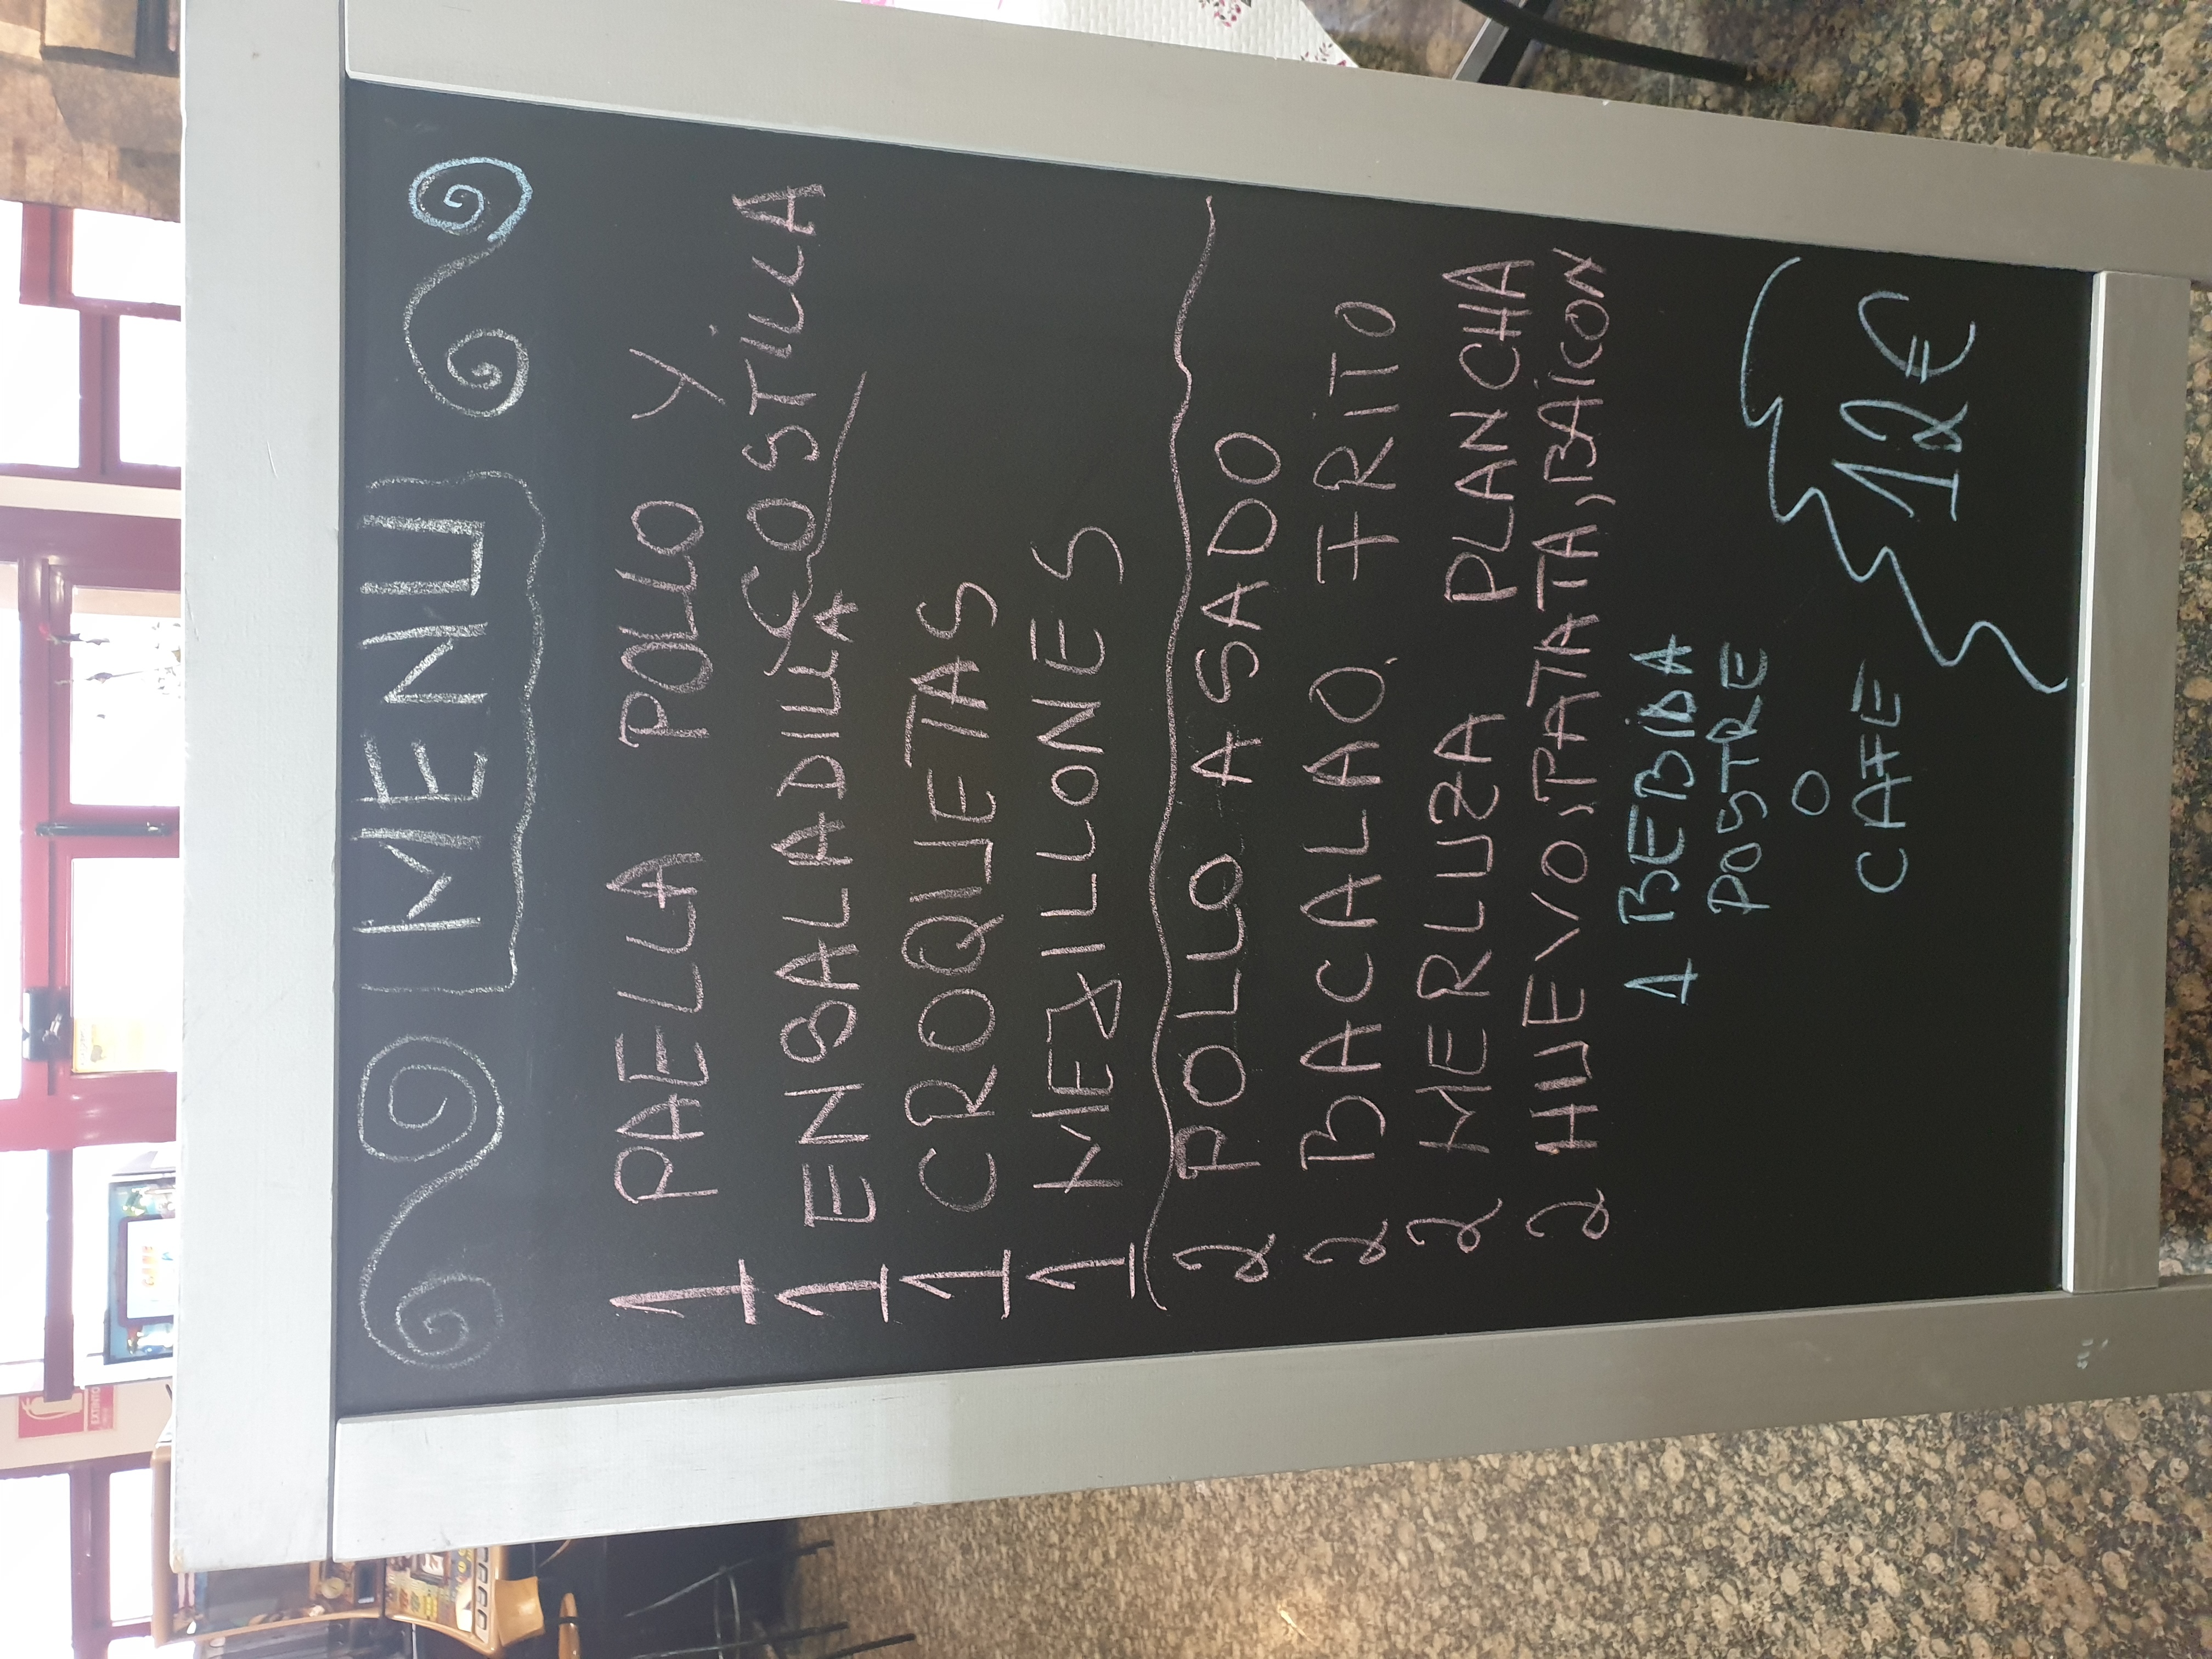 MENU
1 PAELLA POLLO Y
COSTILLA
1 ENSALADILLA
1 CROQUETAS
1 MEXILLONES
2 POLLO ASADO
2 BACALAO FRITO
2 MERLUZA PLANCHA
2 HUEVO, PATATA, BAICON
1 BEBIDA
POSTRE
O
CAFE
12€
EXTINTO